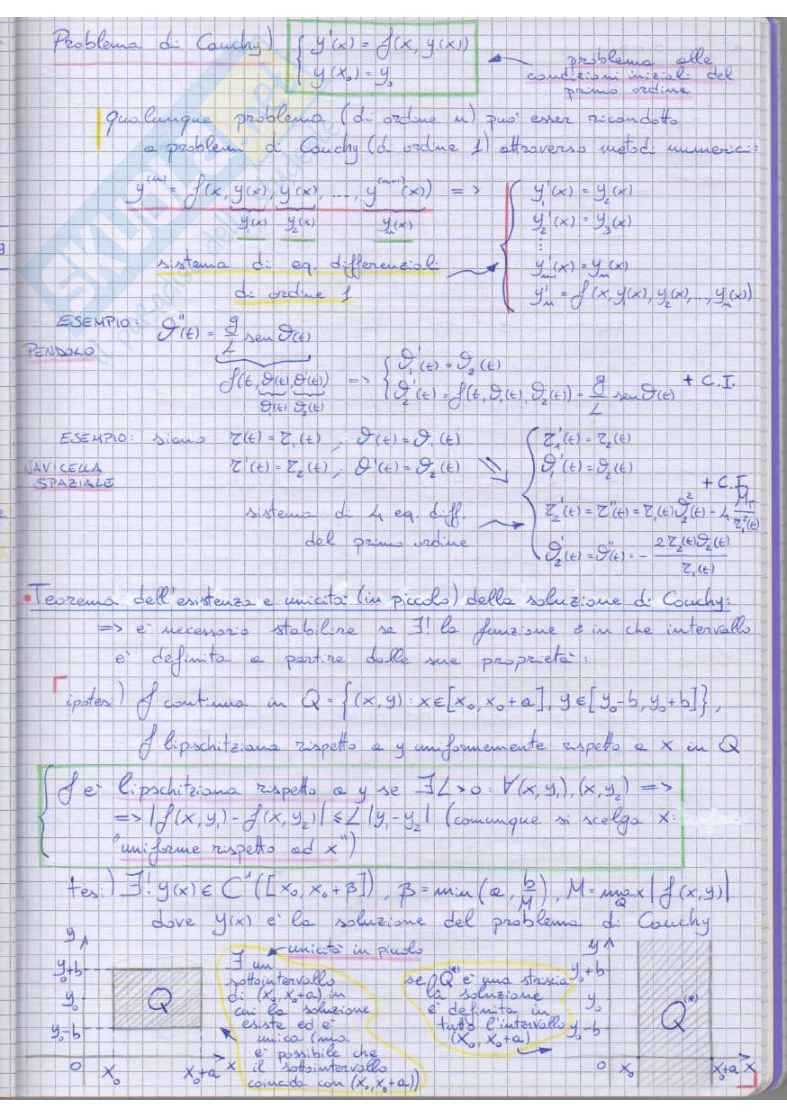 Problema di Cauchy) { y'(x) = f(x, y(x))
y(x₀) = y₀
problema alle
condizioni iniziali del
primo ordine
qualunque problema (di ordine n) puo' esser ricondotto
a problemi di Cauchy (di ordine 1) attraverso metodi numerici:
y⁽ⁿ⁾ = f(x, y(x), y'(x), ..., y⁽ⁿ⁻¹⁾(x)) =>
y₁(x) y₂(x) yₙ(x)
y₁'(x) = y₂(x)
y₂'(x) = y₃(x)
⋮
y'ₙ₋₁(x) = yₙ(x)
yₙ' = f(x, y₁(x), y₂(x), ..., yₙ(x))
sistema di eq. differenziali
di ordine 1
ESEMPIO:
PENDOLO
ϑ''(t) = g/L sen ϑ(t)
f(t, ϑ(t), ϑ'(t)) =>
ϑ₁(t) ϑ₂(t)
ϑ₁'(t) = ϑ₂(t)
ϑ₂'(t) = f(t, ϑ₁(t), ϑ₂(t)) = g/L sen ϑ(t) + C.I.
ESEMPIO: siano r(t) = r₁(t), ϑ(t) = ϑ₁(t)
NAVICELLA
SPAZIALE
r'(t) = r₂(t), ϑ'(t) = ϑ₂(t)
r₁'(t) = r₂(t)
ϑ₁'(t) = ϑ₂(t)
+ C.I.
r₂'(t) = r''(t) = r₁(t)ϑ₂²(t) - 4 M_T/r₁²(t)
ϑ₂'(t) = ϑ''(t) = - 2r₂(t)ϑ₂(t)/r₁(t)
sistema di 4 eq. diff.
del primo ordine
• Teorema dell'esistenza e unicita' (in piccolo) della soluzione di Cauchy:
=> e' necessario stabilire se ∃! la funzione e in che intervallo
e' definita a partire dalle sue proprieta':
ipotesi) f continua in Q = {(x, y) : x∈[x₀, x₀+a], y∈[y₀-b, y₀+b]},
f lipschitziana rispetto a y uniformemente rispetto a x in Q
f e' lipschitziana rispetto a y se ∃L>0 : ∀(x, y₁), (x, y₂) =>
=> |f(x, y₁) - f(x, y₂)| ≤ L |y₁-y₂| (comunque si scelga x:
"uniforme rispetto ad x")
tesi) ∃! y(x) ∈ C¹([x₀, x₀+β]), β = min(a, b/M), M = max_Q |f(x,y)|
dove y(x) e' la soluzione del problema di Cauchy
y
y₀+b
y₀
y₀-b
0
x₀
x₀+a
x
Q
unicita' in piccolo
∃ un
sottointervallo
di (x₀, x₀+a) in
cui la soluzione
esiste ed e'
unica (ma
e' possibile che
il sottointervallo
coincida con (x₀, x₀+a))
se Q⁽*⁾ e' una striscia
la soluzione
e' definita in
tutto l'intervallo
(x₀, x₀+a)
y
y₀+b
y₀
y₀-b
0
x₀
x₀+a
x
Q⁽*⁾